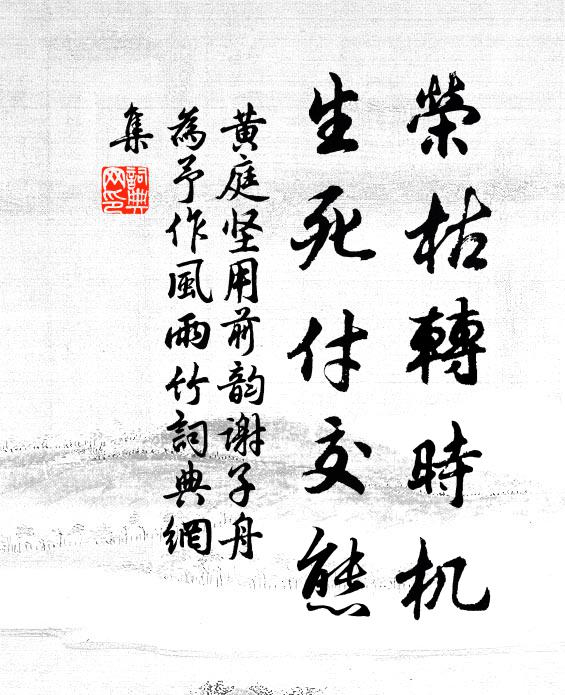 榮枯轉時机
生死付交態
黄庭坚用前韵谢子舟
為予作風雨竹詞典網
集
詞典
网印